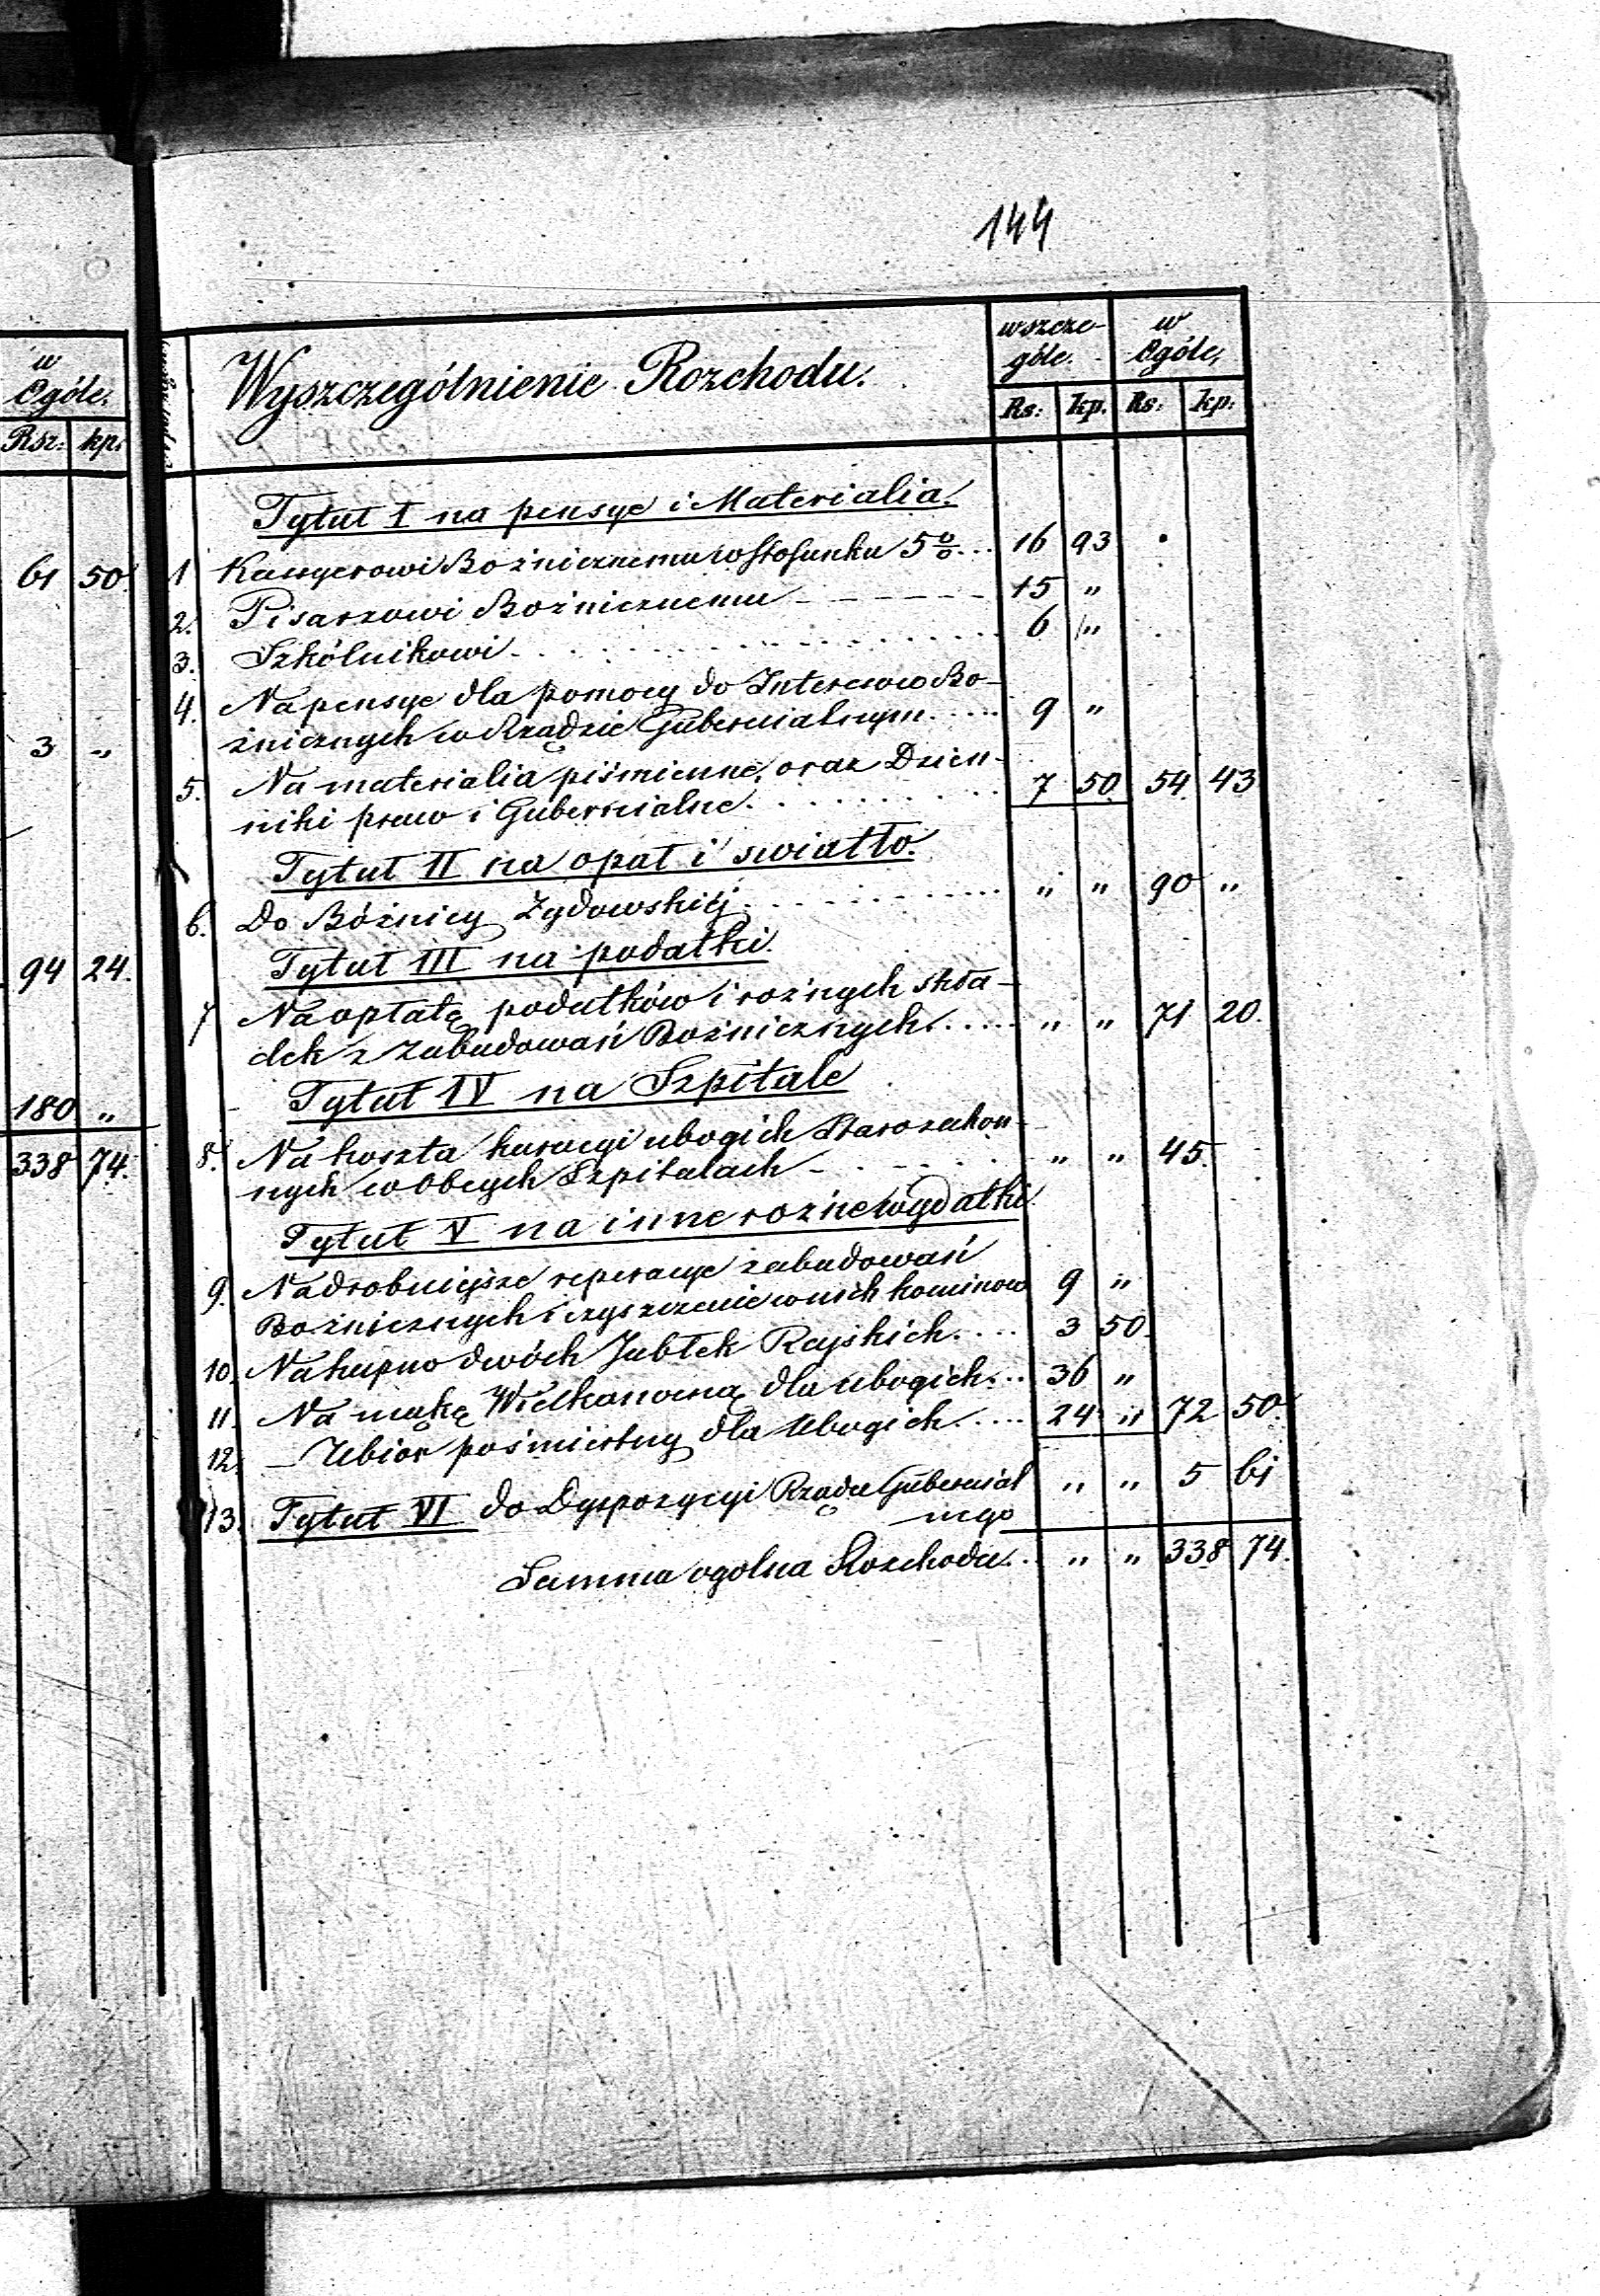 144
w
Ogóle.
Rsr: kp:
61 50.
3 "
94 24.
180 "
338 74.
Wyszczególnienie Rozchodu.
wszcze-
góle.
w
Ogóle,
Rs: kp. Rs: kp:
Tytuł I na pensye i Materialia.
1 Kassyerowi Bożnicznemu w stosunku 5 % 16 93
2. Pisarzowi Bożnicznemu 15 "
3. Szkólnikowi 6 "
4. Na pensye dla pomocy do Interesow Bo-
żnicznych w Rządzie Gubernialnym 9 "
5. Na materialia piśmienne, oraz Dzien-
niki praw i Gubernialne 7 50. 54. 43
Tytuł II na opał i swiatło.
6. Do Bóżnicy Żydowskiéj " " 90 "
Tytuł III na podatki.
7 Na opłatę podatków i rożnych skła-
dek z zabudowań Bożnicznych " " 71 20.
Tytuł IV na Szpitale
8. Na koszta kuracyi ubogich Starozakon-
nych w obcych Szpitalach " " 45.
Tytuł V na inne rozne wydatki.
9. Na drobniejsze reperacye zabudowań
Bożnicznych i czyszczenie w nich kominow 9 "
10. Na kupno dwóch Jabłek Rajskich 3 50.
11. Na mąkę Wielkanocną dla ubogich 36 "
12. — Ubior pośmiertny dla Ubogich 24 " 72 50.
13. Tytuł VI do Dyspozycyi Rządu Gubernial
nego " " 5 61
Summa ogolna Rozchodu " " 338 74.